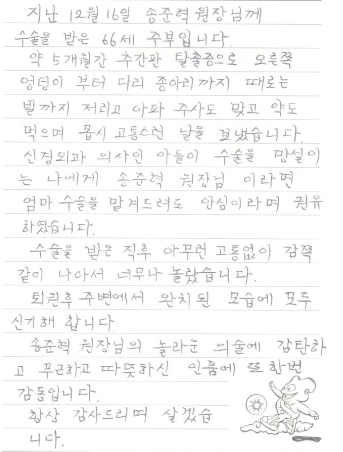 지난 12월 16일 송준혁 원장님께
수술을 받은 66세 주부입니다.
약 5개월간 추간판 탈출증으로 오른쪽
엉덩이 부터 다리 종아리까지 때로는
발까지 저리고 아파 주사도 맞고 약도
먹으며 몹시 고통스런 날을 보냈습니다.
신경외과 의사인 아들이 수술을 망설이
는 나에게 송준혁 원장님 이라면
엄마 수술을 맡겨드려도 안심이라며 권유
하였습니다.
수술을 받은 직후 아무런 고통없이 감쪽
같이 나아서 너무나 놀랐습니다.
퇴원후 주변에서 완치된 모습에 모두
신기해 합니다.
송준혁 원장님의 놀라운 의술에 감탄하
고 푸근하고 따뜻하신 인품에 또 한번
감동입니다.
항상 감사드리며 살겠습
니다.